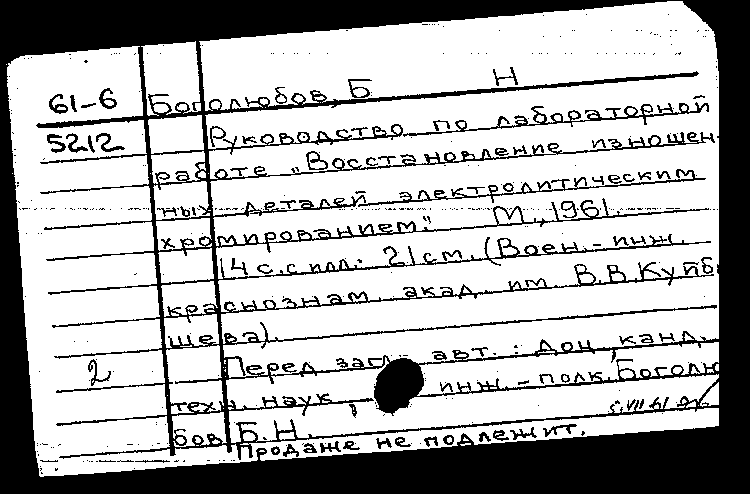 61-6 Боголюбов, Б Н
5212 Руководство по лабораторной
работе „Восстановление изношен-
ных деталей электролитическим
хромированием." М., 1961.
14 с. с илл.; 21 см. (Воен.-инж.
краснознам. акад. им. В.В.Куйбы
шева).
2 Перед загл. авт.: доц., канд.
техн. наук, инж.-полк. Боголю
бов Б.Н.
Продаже не подлежит.